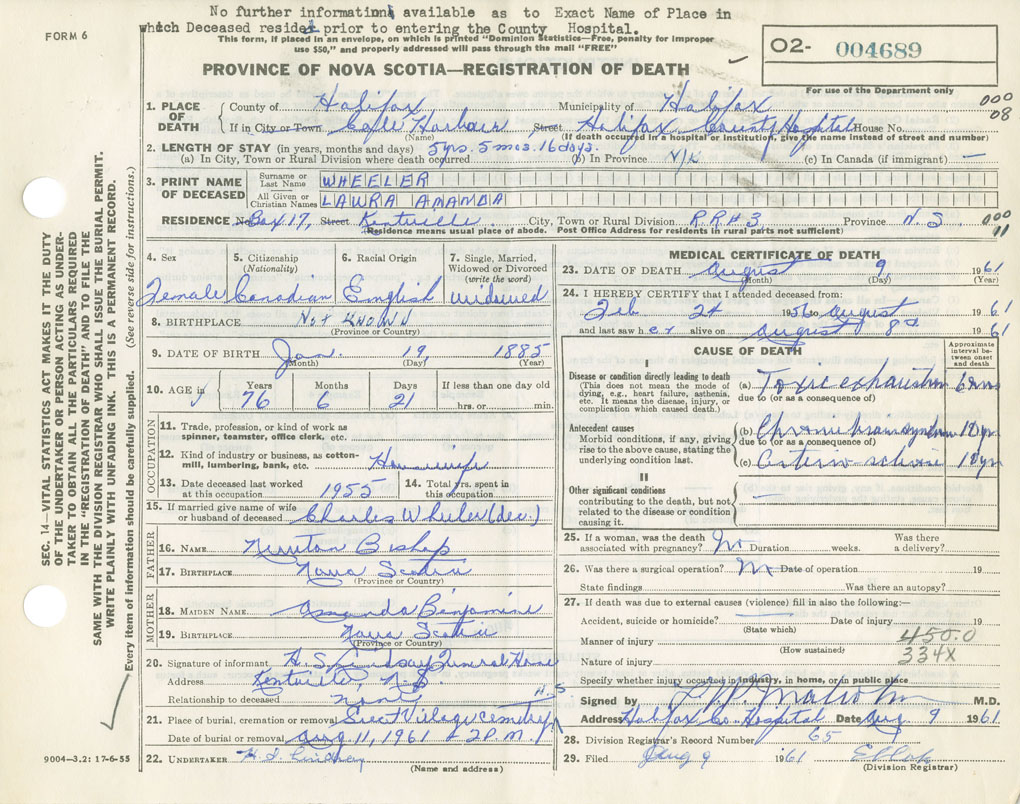 No further information available as to Exact Name of Place in
which Deceased resided prior to entering the County Hospital.
FORM 6
This form, if placed in an envelope, on which is printed "Dominion Statistics—Free, penalty for improper
use $50," and properly addressed will pass through the mail "FREE"
O2- 004689
For use of the Department only
PROVINCE OF NOVA SCOTIA—REGISTRATION OF DEATH
000
08
1. PLACE OF DEATH
County of Halifax Municipality of Halifax
If in City or Town Cole Harbour Street Halifax County Hospital House No.
(Name) (If death occurred in a hospital or institution, give the name instead of street and number)
2. LENGTH OF STAY (in years, months and days) 5 yrs. 5 mos. 16 days.
(a) In City, Town or Rural Division where death occurred (b) In Province N/K (c) In Canada (if immigrant) —
3. PRINT NAME OF DECEASED
Surname or Last Name WHEELER
All Given or Christian Names LAURA AMANDA
RESIDENCE No Box 17, Street Kentville City, Town or Rural Division R.R.#3 Province N.S.
(Residence means usual place of abode. Post Office Address for residents in rural parts not sufficient)
000
11
4. Sex
Female
5. Citizenship
(Nationality)
Canadian
6. Racial Origin
English
7. Single, Married,
Widowed or Divorced
(write the word)
widowed
8. BIRTHPLACE Not KNOWN
(Province or Country)
9. DATE OF BIRTH Jan. 19, 1885
(Month) (Day) (Year)
10. AGE in Years Months Days If less than one day old
76 6 21 hrs. or min.
OCCUPATION
11. Trade, profession, or kind of work as
spinner, teamster, office clerk, etc.
12. Kind of industry or business, as cotton-
mill, lumbering, bank, etc. Housewife
13. Date deceased last worked
at this occupation 1955
14. Total yrs. spent in
this occupation
15. If married give name of wife
or husband of deceased Charles Wheeler (dec.)
FATHER
16. NAME Newton Bishop
17. BIRTHPLACE Nova Scotia
(Province or Country)
MOTHER
18. MAIDEN NAME Amanda Benjamine
19. BIRTHPLACE Nova Scotia
(Province or Country)
20. Signature of informant H. S. Lindsay Funeral Home
Address Kentville, N.S.
Relationship to deceased none
21. Place of burial, cremation or removal Scot Village Cemetery
N.S
Date of burial or removal Aug. 11, 1961 2 P.M.
22. UNDERTAKER H. S. Lindsay
(Name and address)
9004—3.2: 17-6-55
MEDICAL CERTIFICATE OF DEATH
23. DATE OF DEATH August 9 1961
(Month) (Day) (Year)
24. I HEREBY CERTIFY that I attended deceased from:
Feb 24 1956 to August 1961
and last saw her alive on August 8th 1961
CAUSE OF DEATH
Approximate
interval be-
tween onset
and death
I
Disease or condition directly leading to death
(This does not mean the mode of
dying, e.g., heart failure, asthenia,
etc. It means the disease, injury, or
complication which caused death.)
(a) Toxic exhaustion
due to (or as a consequence of)
Antecedent causes
Morbid conditions, if any, giving
rise to the above cause, stating the
underlying condition last.
(b) Chronic brain syndrome 10 yrs
due to (or as a consequence of)
(c) 10 yrs
II
Other significant conditions
contributing to the death, but not
related to the disease or condition
causing it.
—
25. If a woman, was the death
associated with pregnancy? No Duration weeks. Was there
a delivery?
26. Was there a surgical operation? No Date of operation 19
State findings Was there an autopsy?
27. If death was due to external causes (violence) fill in also the following:—
Accident, suicide or homicide? Date of injury 19
(State which)
Manner of injury 450.0
(How sustained)
Nature of injury 334X
Specify whether injury occurred in industry, in home, or in public place
Signed by Malcolm M.D.
Address Halifax Co. Hospital Date Aug 9 1961
28. Division Registrar's Record Number 65
29. Filed Aug 9 1961
(Division Registrar)
SEC. 14—VITAL STATISTICS ACT MAKES IT THE DUTY
OF THE UNDERTAKER OR PERSON ACTING AS UNDER-
TAKER TO OBTAIN ALL THE PARTICULARS REQUIRED
IN THE "REGISTRATION OF DEATH" AND TO FILE THE
SAME WITH THE DIVISION REGISTRAR WHO SHALL ISSUE THE BURIAL PERMIT.
WRITE PLAINLY WITH UNFADING INK. THIS IS A PERMANENT RECORD.
Every item of information should be carefully supplied. (See reverse side for instructions.)